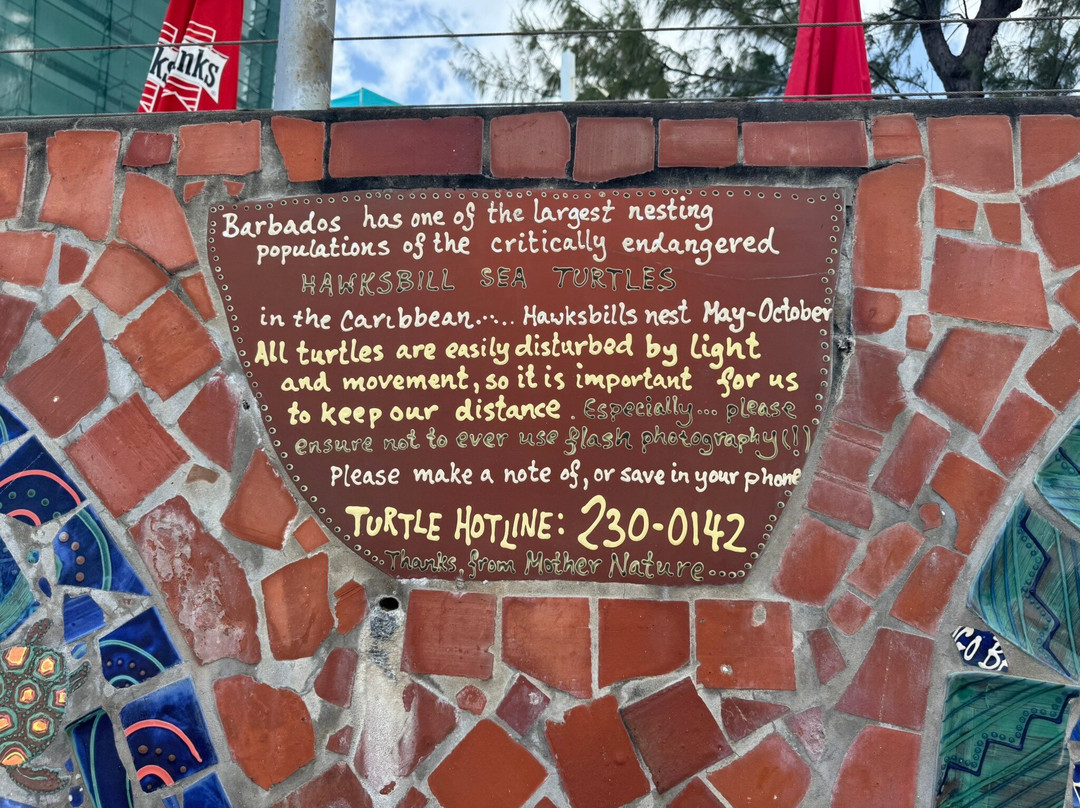 Barbados has one of the largest nesting
populations of the critically endangered
HAWKSBILL SEA TURTLES
in the Caribbean...... Hawksbills nest May-October
All turtles are easily disturbed by light
and movement, so it is important for us
to keep our distance. Especially... please
ensure not to ever use flash photography(!)
Please make a note of, or save in your phone
TURTLE HOTLINE: 230-0142
Thanks, from Mother Nature...